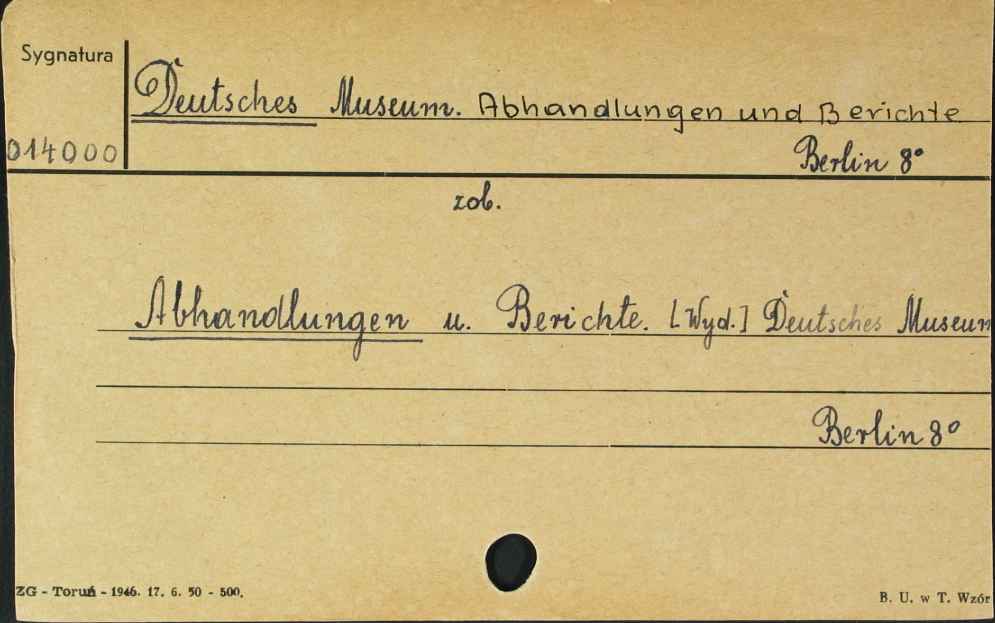 Sygnatura
Deutsches Museum. Abhandlungen und Berichte
014000
Berlin 8°
zob.
Abhandlungen u. Berichte. [Wyd.] Deutsches Museum
Berlin 8°
ZG - Toruń - 1946. 17. 6. 50 - 500.
B. U. w T. Wzór